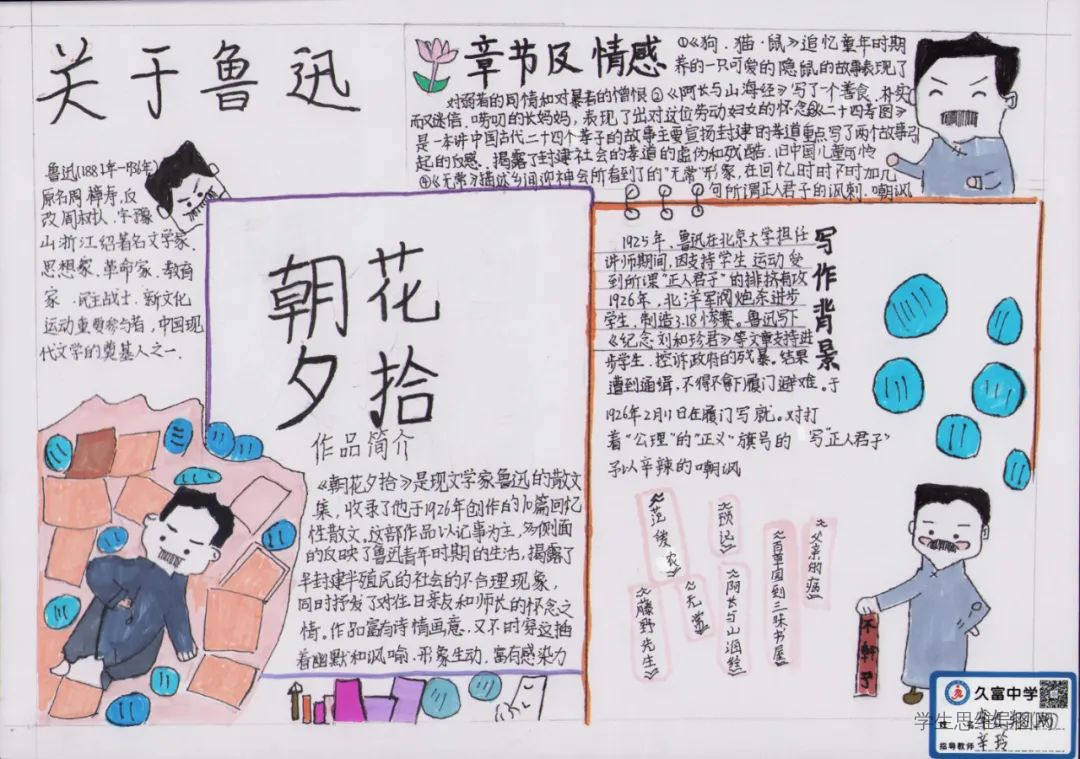 关于鲁迅
鲁迅(1881年一1936年)
原名周樟寿,后
改周树人,字豫
山浙江绍著名文学家、
思想家、革命家、教育
家、民主战士,新文化
运动重要参与者,中国现
代文学的奠基人之一.
章节及情感
①《狗·猫·鼠》追忆童年时期
养的一只可爱的隐鼠的故事表现了
对弱者的同情和对暴者的憎恨②《阿长与山海经》写了一个善良、朴实
而又迷信、唠叨的长妈妈,表现了出对这位劳动妇女的怀念③《二十四孝图》
是一本讲中国古代二十四个孝子的故事主要宣扬封建的孝道重点写了两个故事引
起的反感、揭露了封建社会的孝道的虚伪和残酷.旧中国儿童可怜
④《无常》描述乡间迎神会所看到了的"无常"形象,在回忆时时不时加几
句所谓正人君子的讽刺、嘲讽
朝花
夕拾
作品简介
《朝花夕拾》是现文学家鲁迅的散文
集,收录了他于1926年创作的10篇回忆
性散文,这部作品以记事为主,多侧面
的反映了鲁迅青年时期的生活,揭露了
半封建半殖民的社会的不合理现象,
同时抒发了对往日亲友和师长的怀念之
情。作品富有诗情画意,又不时穿这插
着幽默和讽喻,形象生动,富有感染力
写作背景
1925年,鲁迅在北京大学担任
讲师期间,因支持学生运动受
到所谓"正人君子"的排挤有攻
1926年,北洋军阀炮杀进步
学生,制造3.18惨案。鲁迅写下
《纪念刘和珍君》等文章支持进
步学生,控诉政府的残暴。结果
遭到通缉,不得不下厦门避难。于
1926年2月11日在厦门写就。对打
着"公理"的"正义"旗号的 写"正人君子"
予以辛辣的嘲讽
《范爱农》
《琐记》
《父亲的病》
《百草园到三味书屋》
《藤野先生》
《无常》
《阿长与山海经》
久富中学
学生思维导图网
指导教师